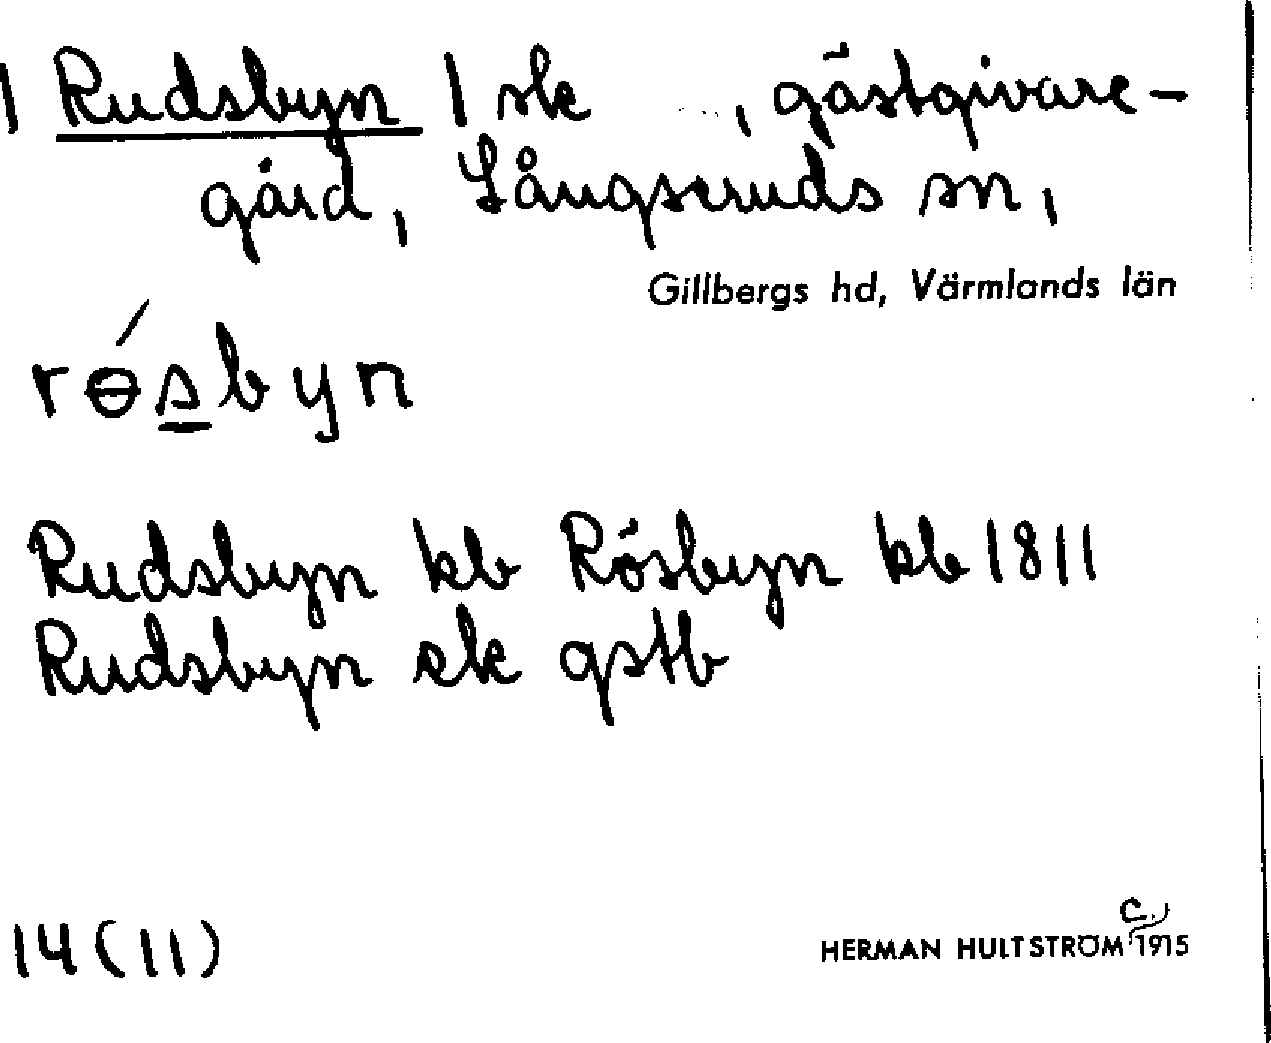 | Rudsbyn | sk , gästgivare-
gård, Långseruds sn,
Gillbergs hd, Värmlands län
rɵ́sbyn
Rudsbyn kb Rösbyn kb 1811
Rudsbyn ek gstb
14 (11)
HERMAN HULTSTRÖM c. 1915